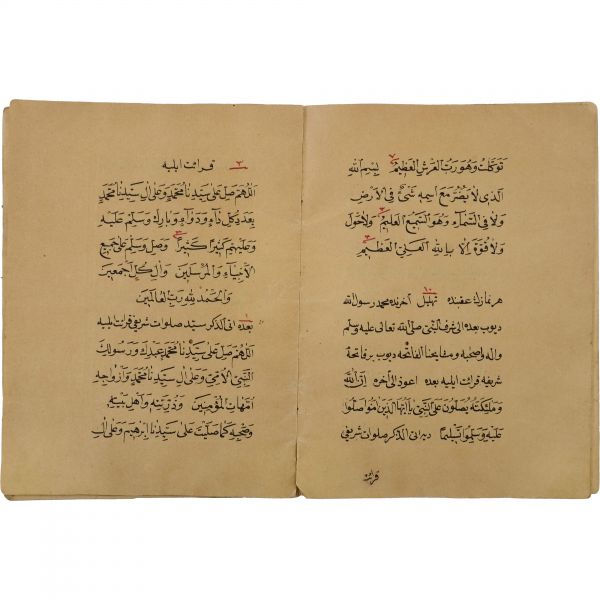 توكلت وهو رب العرش العظيم ٧ بسم الله
الذى لا يضر مع اسمه شئ فى الارض
ولا فى السماء وهو السميع العليم ٣ ولا حول
ولا قوة الا بالله العلى العظيم ٣
١٠
هر نمازك عقبنده تهليل آخرنده محمد رسول الله
ديوب بعده الى شرف النبى صلى الله تعالى عليه وسلم
وآله واصحبه ومشايخنا الفاتحه ديوب بر فاتحة
شريفه قرائت ايليه بعده اعوذ الى آخره ان الله
وملئكته يصلون على النبى يا ايها الذين امنوا صلوا
عليه وسلموا تسليما ديوب اتى الذكر صلوات شريفى
قرائت
٢ قرائت ايليه
اللهم صل على سيدنا محمد وعلى ال سيدنا محمد
بعدد كل داء ودواء وبارك وسلم عليه
وعليهم كثيرا كثيرا ٣ وصل وسلم على جميع
الانبياء والمرسلين وال كل اجمعين
والحمد لله رب العالمين
١
بعده اتى الذكر سيد صلوات شريفى قرائت ايليه
اللهم صل على سيدنا محمد عبدك ورسولك
النبى الامى وعلى ال سيدنا محمد وازواجه
امهات المؤمنين وذريته واهل بيته
وصحبه كما صليت على سيدنا ابرهيم وعلى ال